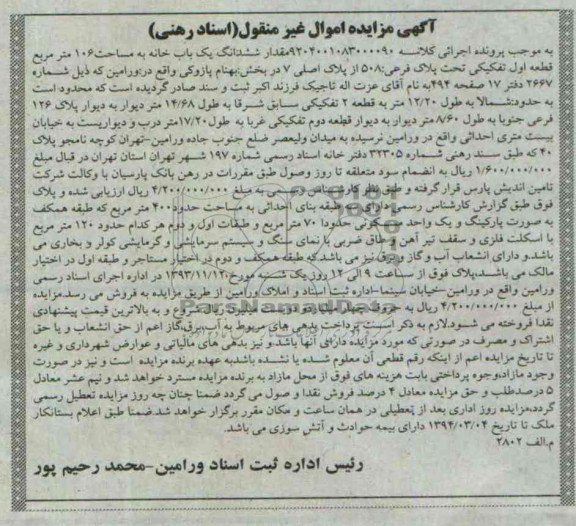 آگهی مزایده اموال غیر منقول(اسناد رهنی)
به موجب پرونده اجرائی کلاسه ۹۲۰۴۰۰۱۰۸۳۰۰۰۰۹۰مقدار ششدانگ یک باب خانه به مساحت۱۰۶ متر مربع
قطعه اول تفکیکی تحت پلاک فرعی:۵۰۸ از پلاک اصلی ۷ در بخش:بهنام پازوکی واقع در:ورامین که ذیل شماره
۲۶۶۷ دفتر ۱۷ صفحه ۴۹۴به نام آقای عزت اله تاجیک فرزند اکبر ثبت و سند صادر گردیده است که محدود است
به حدود:شمالا به طول ۱۲/۲۰ متر به قطعه ۲ تفکیکی مسابق شرقا به طول ۱۴/۶۸ متر دیوار به دیوار پلاک ۱۲۶
فرعی جنوبا به طول ۸/۶۰ متر دیوار به دیوار قطعه دوم تفکیکی غربا به طول۱۷/۲۰متر درب و دیواریست به خیابان
بیست متری احداثی واقع در ورامین نرسیده به میدان ولیعصر ضلع جنوب جاده ورامین-تهران کوچه نامجو پلاک
۴۰ که طبق سند رهنی شماره ۳۲۳۰۵ دفتر خانه اسناد رسمی شماره ۱۹۷ شهر تهران استان تهران در قبال مبلغ
۱/۶۰۰/۰۰۰/۰۰۰ ریال به انضمام سود متعلقه تا روز وصول طبق مقررات در رهن بانک پارسیان با وکالت شرکت
تامین اندیش پارس قرار گرفته و طبق نظر کارشناس رسمی به مبلغ ۴/۲۰۰/۰۰۰/۰۰۰ ریال ارزیابی شده و پلاک
فوق طبق گزارش کارشناس رسمی دارای سه طبقه بنای احداثی به مساحت حدود ۴۰۰ متر مربع که طبقه همکف
به صورت پارکینگ و یک واحد مسکونی حدودا ۷۰ متر مربع و طبقات اول و دوم هر کدام حدود ۱۲۰ متر مربع
با اسکلت فلزی و سقف تیر آهن و طاق ضربی با نمای سنگ و سیستم سرمایشی و گرمایشی کولر و بخاری می
باشد.و دارای انشعاب آب و گاز و برق نیز می باشد.که طبقه همکف و دوم در اختیار مستاجر و طبقه اول در اختیار
مالک می باشد.پلاک فوق از ساعت ۹ الی ۱۲ روز یک شنبه مورخ ۱۳۹۳/۱۱/۱۲ در اداره اجرای اسناد رسمی
ورامین واقع در ورامین-خیابان سینما-اداره ثبت اسناد و املاک ورامین از طریق مزایده به فروش می رسد.مزایده
از مبلغ ۴/۲۰۰/۰۰۰/۰۰۰ ریال به حروف چهار میلیارد و دویست میلیون ریال شروع و به بالاترین قیمت پیشنهادی
نقدا فروخته می شود.لازم به ذکر است پرداخت بدهی های مربوط به آب،برق،گاز اعم از حق انشعاب و یا حق
اشتراک و مصرف در صورتی که مورد مزایده دارای آنها باشد و نیز بدهی های مالیاتی و عوارض شهرداری و غیره
تا تاریخ مزایده اعم از اینکه رقم قطعی آن معلوم شده یا نشده باشد به عهده برنده مزایده است و نیز در صورت
وجود مازاد،وجوه پرداختی بابت هزینه های فوق از محل مازاد به برنده مزایده مسترد خواهد شد و نیم عشر معادل
۵ درصدطلب و حق مزایده معادل ۴ درصد فروش نقدا و صول می گردد ضمنا چنان چه روز مزایده تعطیل رسمی
گردد،مزایده روز اداری بعد از تعطیلی در همان ساعت و مکان مقرر برگزار خواهد شد.ضمنا طبق اعلام بستانکار
ملک تا تاریخ ۱۳۹۴/۰۳/۰۴ دارای بیمه حوادث و آتش سوزی می باشد.
م.الف ۲۸۰۲
رئیس اداره ثبت اسناد ورامین-محمد رحیم پور
ParsNamadData